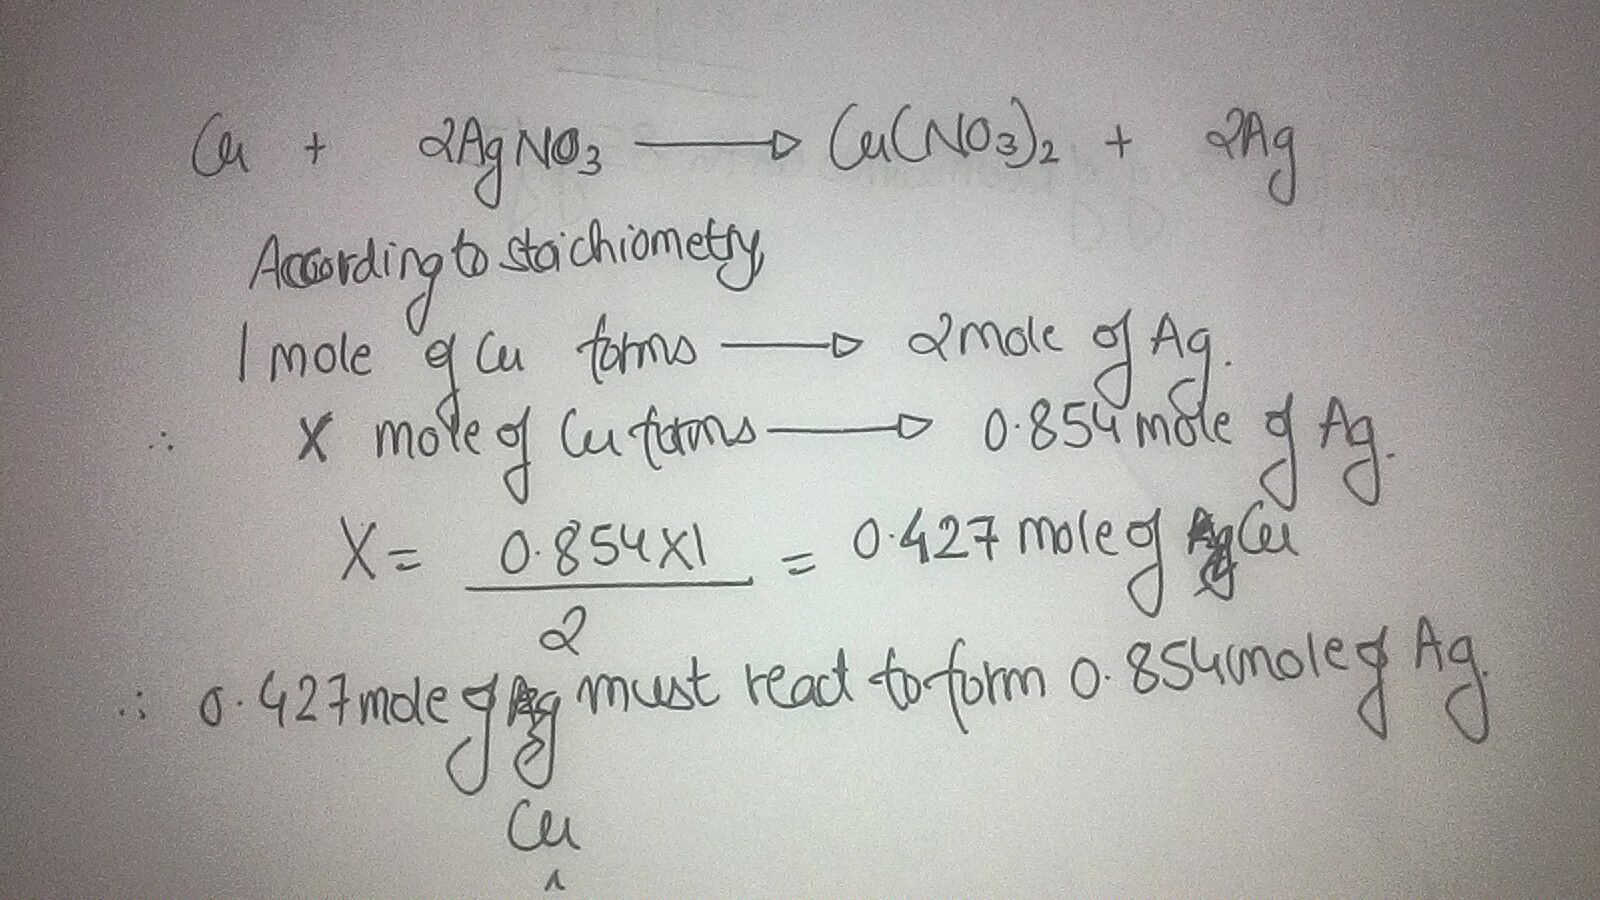 Cu + 2AgNO3 → Cu(NO3)2 + 2Ag
According to stoichiometry,
1 mole of Cu forms → 2 mole of Ag.
∴ X mole of Cu forms → 0.854 mole of Ag.
X = 0.854X1 / 2 = 0.427 mole of Cu
∴ 0.427 mole of Cu must react to form 0.854 mole of Ag.